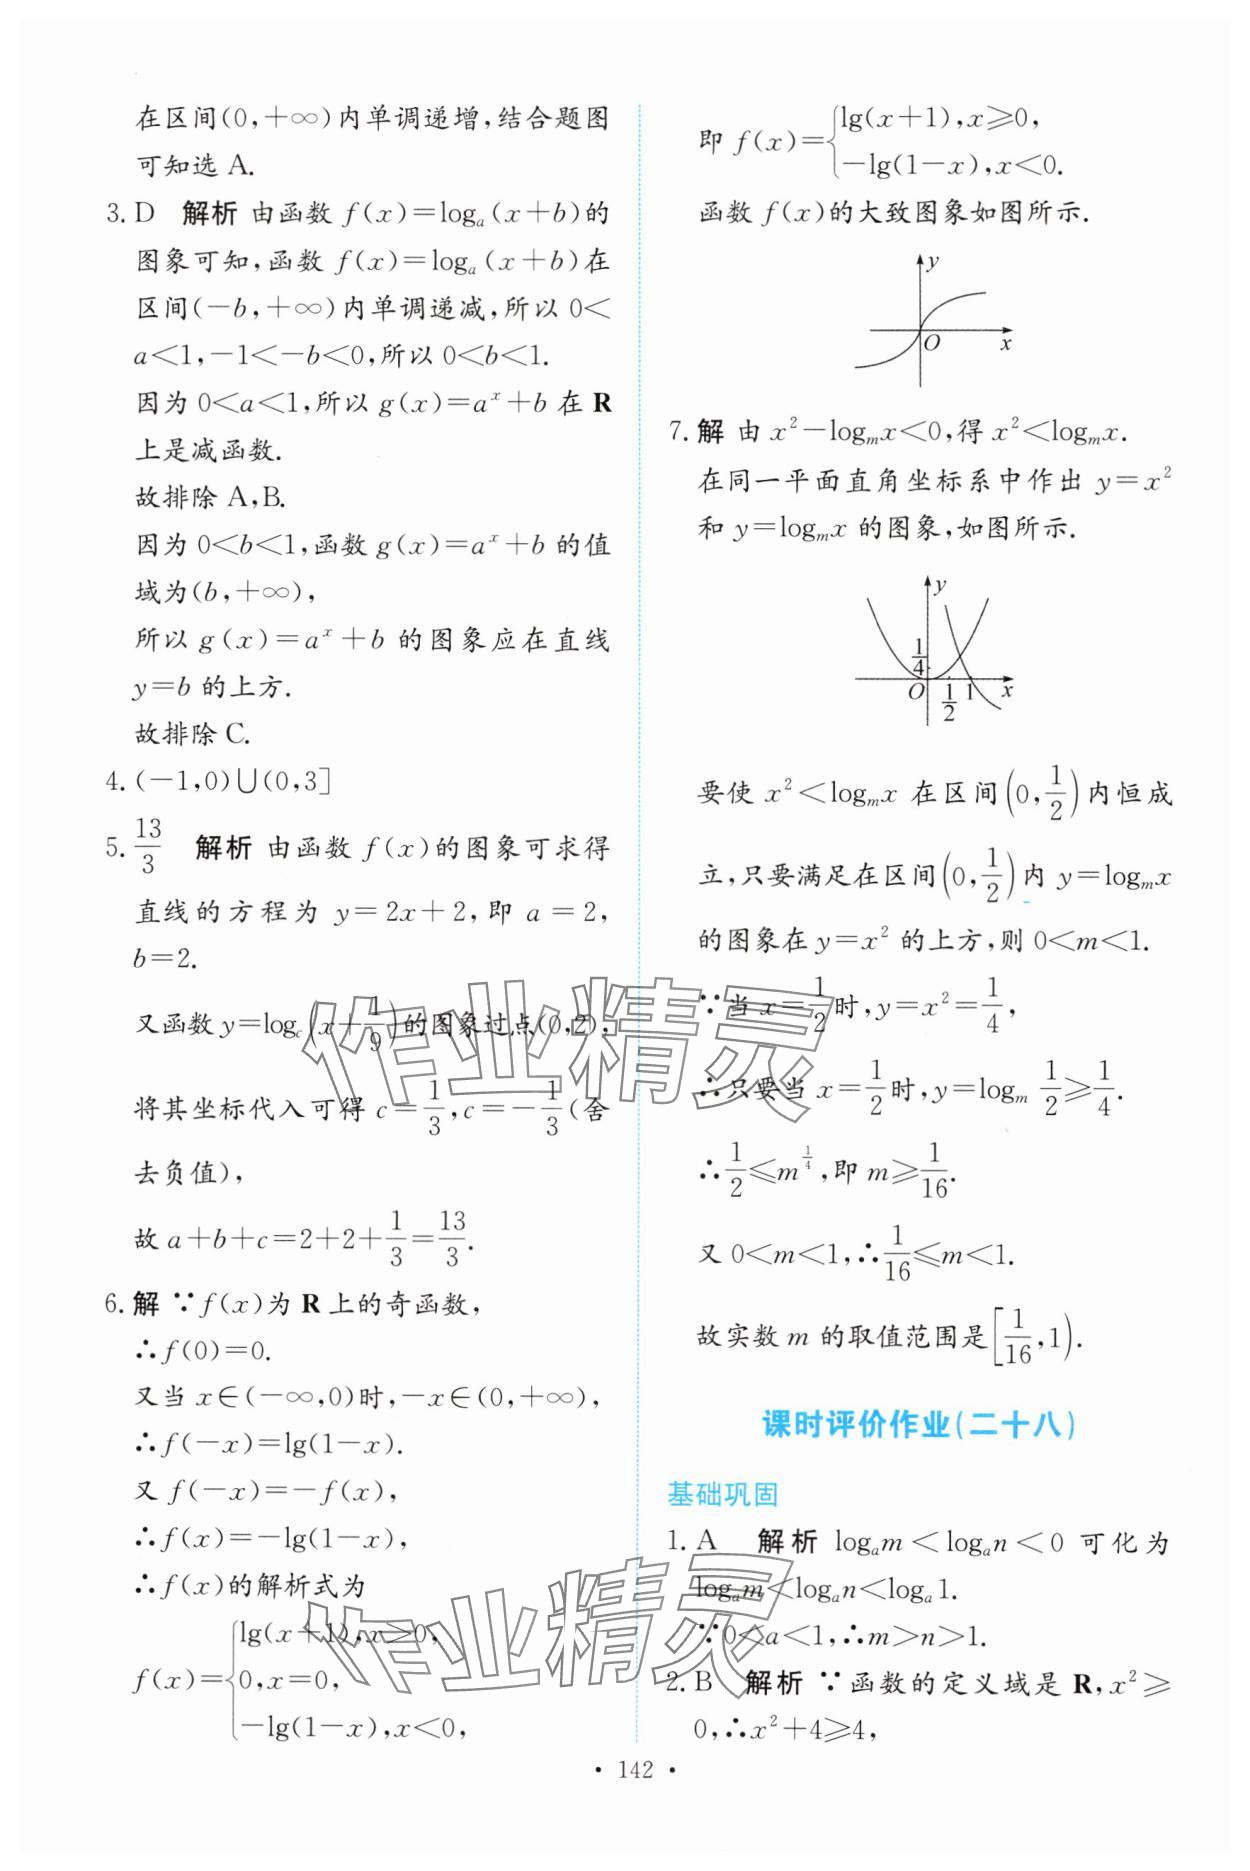 在区间(0,+∞)内单调递增,结合题图
可知选 A.
3. D 解析 由函数 f(x)=logₐ(x+b)的
图象可知,函数 f(x)=logₐ(x+b)在
区间(-b,+∞)内单调递减,所以 0<
a<1,-1<-b<0,所以 0<b<1.
因为 0<a<1,所以 g(x)=aˣ+b 在 R
上是减函数.
故排除 A,B.
因为 0<b<1,函数 g(x)=aˣ+b 的值
域为(b,+∞),
所以 g(x)=aˣ+b 的图象应在直线
y=b 的上方.
故排除 C.
4. (-1,0)∪(0,3]
5. 13/3 解析 由函数 f(x)的图象可求得
直线的方程为 y=2x+2,即 a=2,
b=2.
又函数 y=log_c(x+1/9)的图象过点(0,2),
将其坐标代入可得 c=1/3,c=-1/3(舍
去负值),
故 a+b+c=2+2+1/3=13/3.
6. 解 ∵f(x)为 R 上的奇函数,
∴f(0)=0.
又当 x∈(-∞,0)时,-x∈(0,+∞),
∴f(-x)=lg(1-x).
又 f(-x)=-f(x),
∴f(x)=-lg(1-x),
∴f(x)的解析式为
f(x)={lg(x+1),x>0,
0,x=0,
-lg(1-x),x<0,
即 f(x)={lg(x+1),x≥0,
-lg(1-x),x<0.
函数 f(x)的大致图象如图所示.
y
O
x
7. 解 由 x²-logₘx<0,得 x²<logₘx.
在同一平面直角坐标系中作出 y=x²
和 y=logₘx 的图象,如图所示.
y
1/4
O 1/2 1 x
要使 x²<logₘx 在区间(0,1/2)内恒成
立,只要满足在区间(0,1/2)内 y=logₘx
的图象在 y=x² 的上方,则 0<m<1.
∵当 x=1/2时,y=x²=1/4,
∴只要当 x=1/2时,y=logₘ 1/2≥1/4.
∴1/2≤m^(1/4),即 m≥1/16.
又 0<m<1,∴1/16≤m<1.
故实数 m 的取值范围是[1/16,1).
课时评价作业(二十八)
基础巩固
1. A 解析 logₐm<logₐn<0 可化为
logₐm<logₐn<logₐ1.
∵0<a<1,∴m>n>1.
2. B 解析 ∵函数的定义域是 R,x²≥
0,∴x²+4≥4,
• 142 •
作业精灵
作业精灵